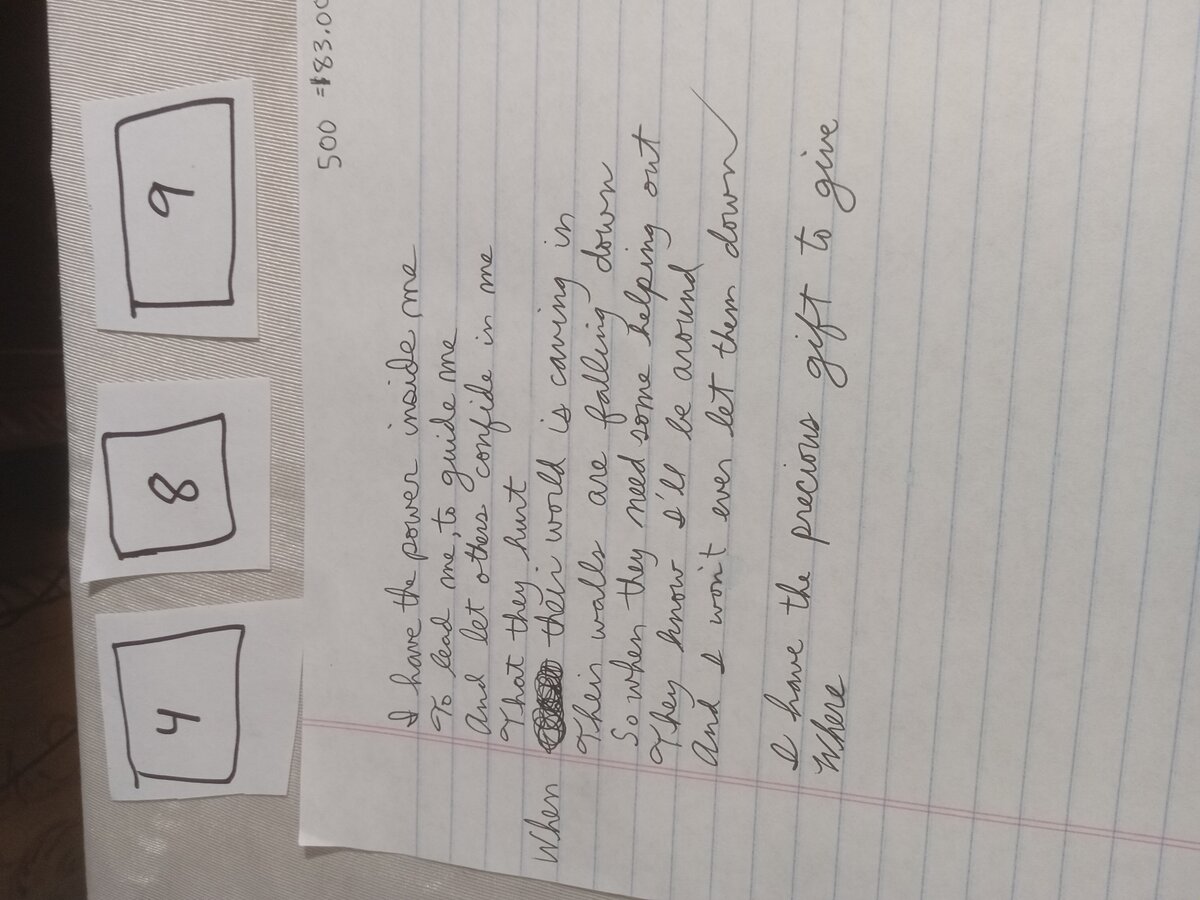 4
8
9
500 = $83.00
I have the power inside me
To lead me, to guide me
And let others confide in me
That they hurt
When their world is caving in
Their walls are falling down
So when they need some helping out
They know I'll be around
And I won't ever let them down
I have the precious gift to give
Where